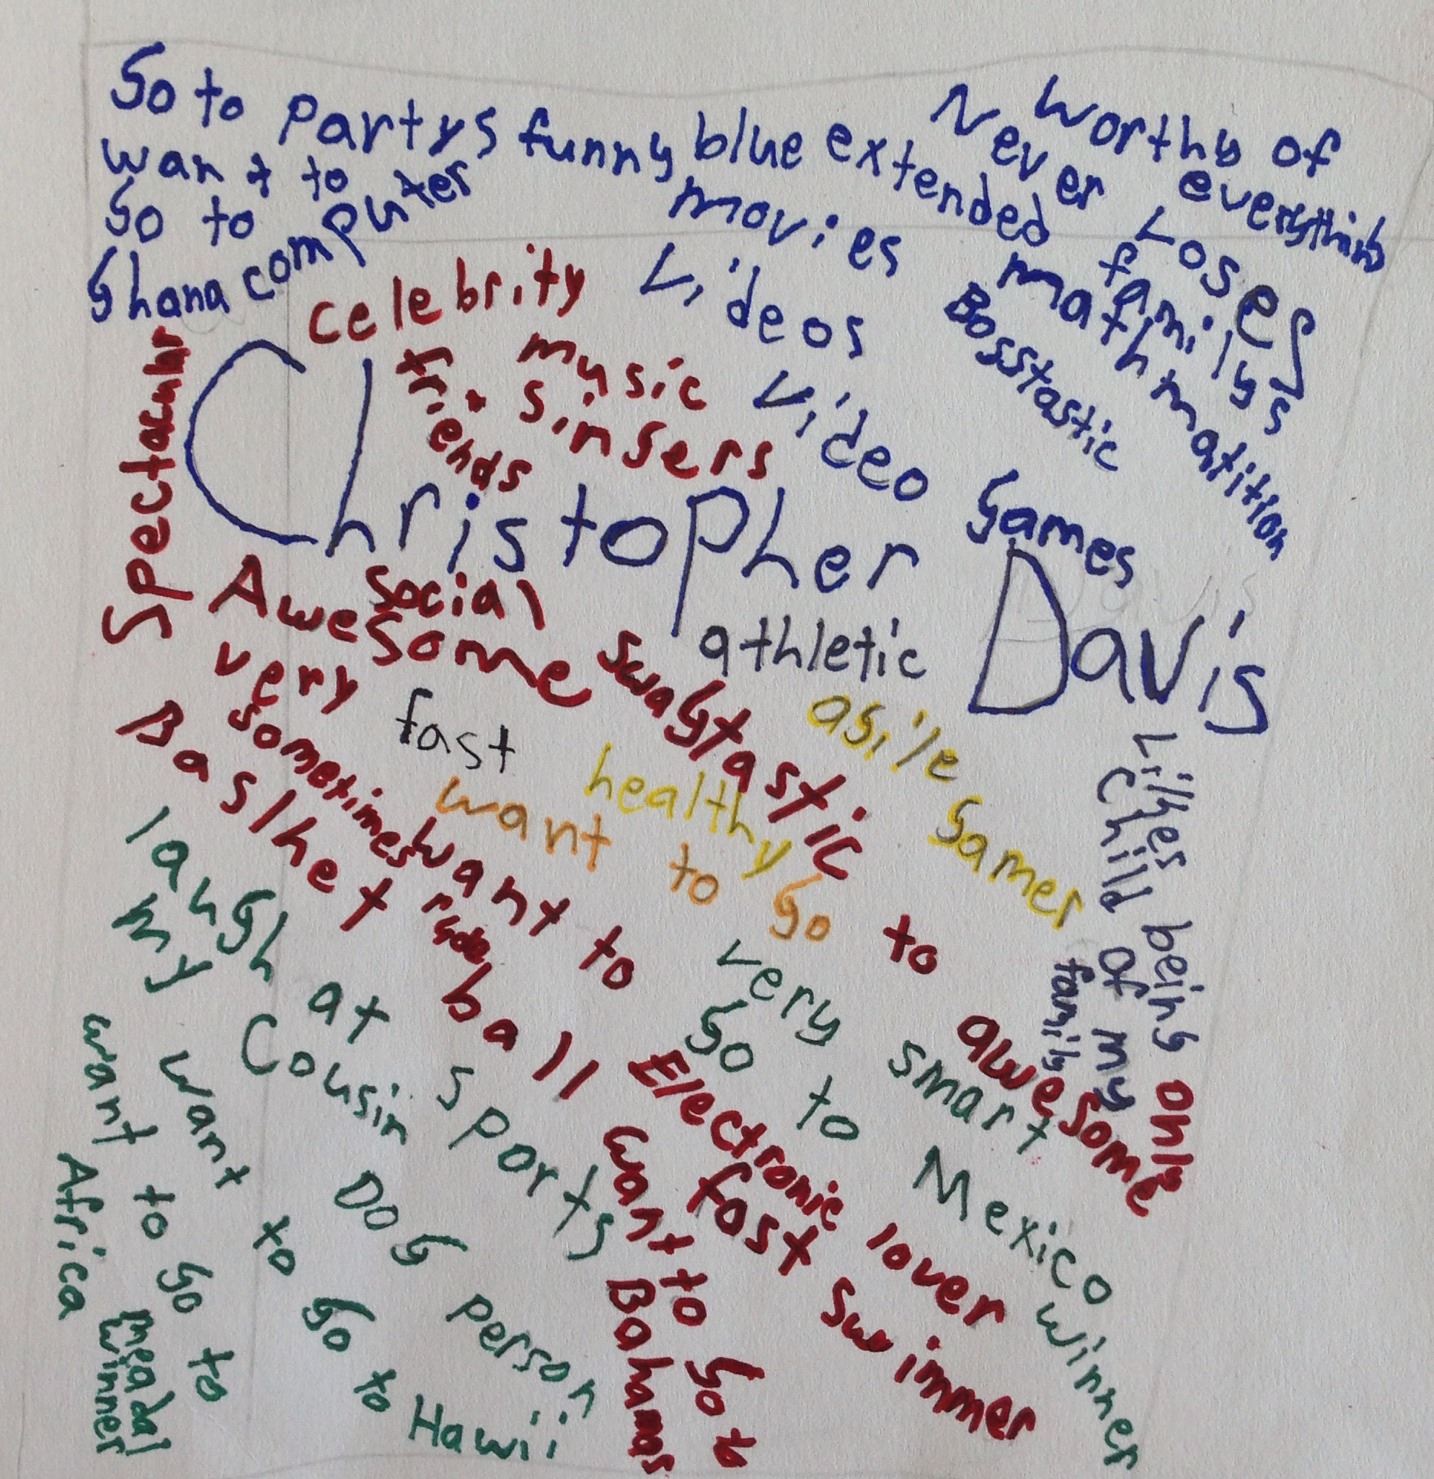 Go to Partys
want to
Go to
Ghana
computer
funny
blue
movies
extended familys
Never Loses
Worthy of
everything
mathmatition
Bosstastic
Videos
Video Games
celebrity
friends
music
singers
Spectacular
Christopher
Davis
Awesome
social
very
sometimes rude
Swagtastic
athletic
fast
healthy
agile
Gamer
want to Go to awesome
Basket ball
want to
Likes being only
Child of my
family
laugh at sports
my Cousin
very smart
Go to Mexico
Electronic lover
fast Swimmer
want to Go to
Bahamas
winner
Dog person
want to Go to Hawii
want to Go to
Africa
meadal
winner